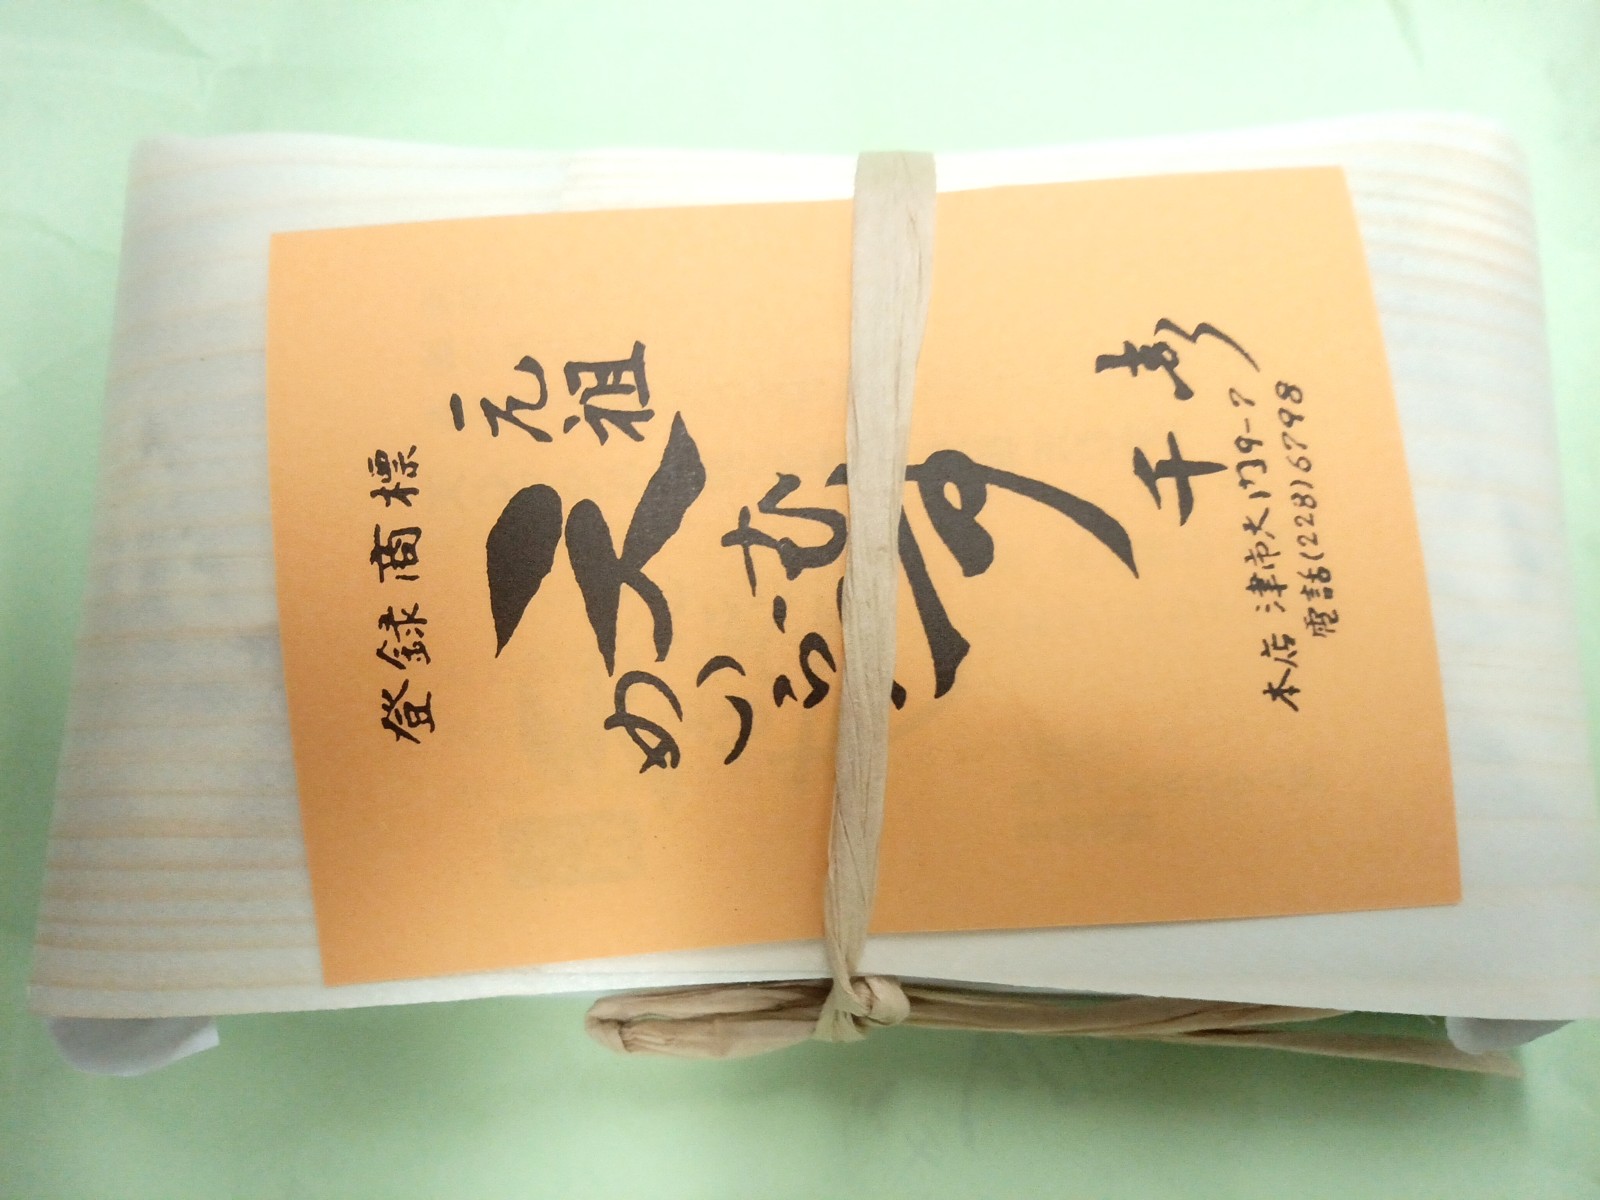 登録商標
元祖
めい
天むす
千寿
本店 津市大門9-7
電話(228)6798